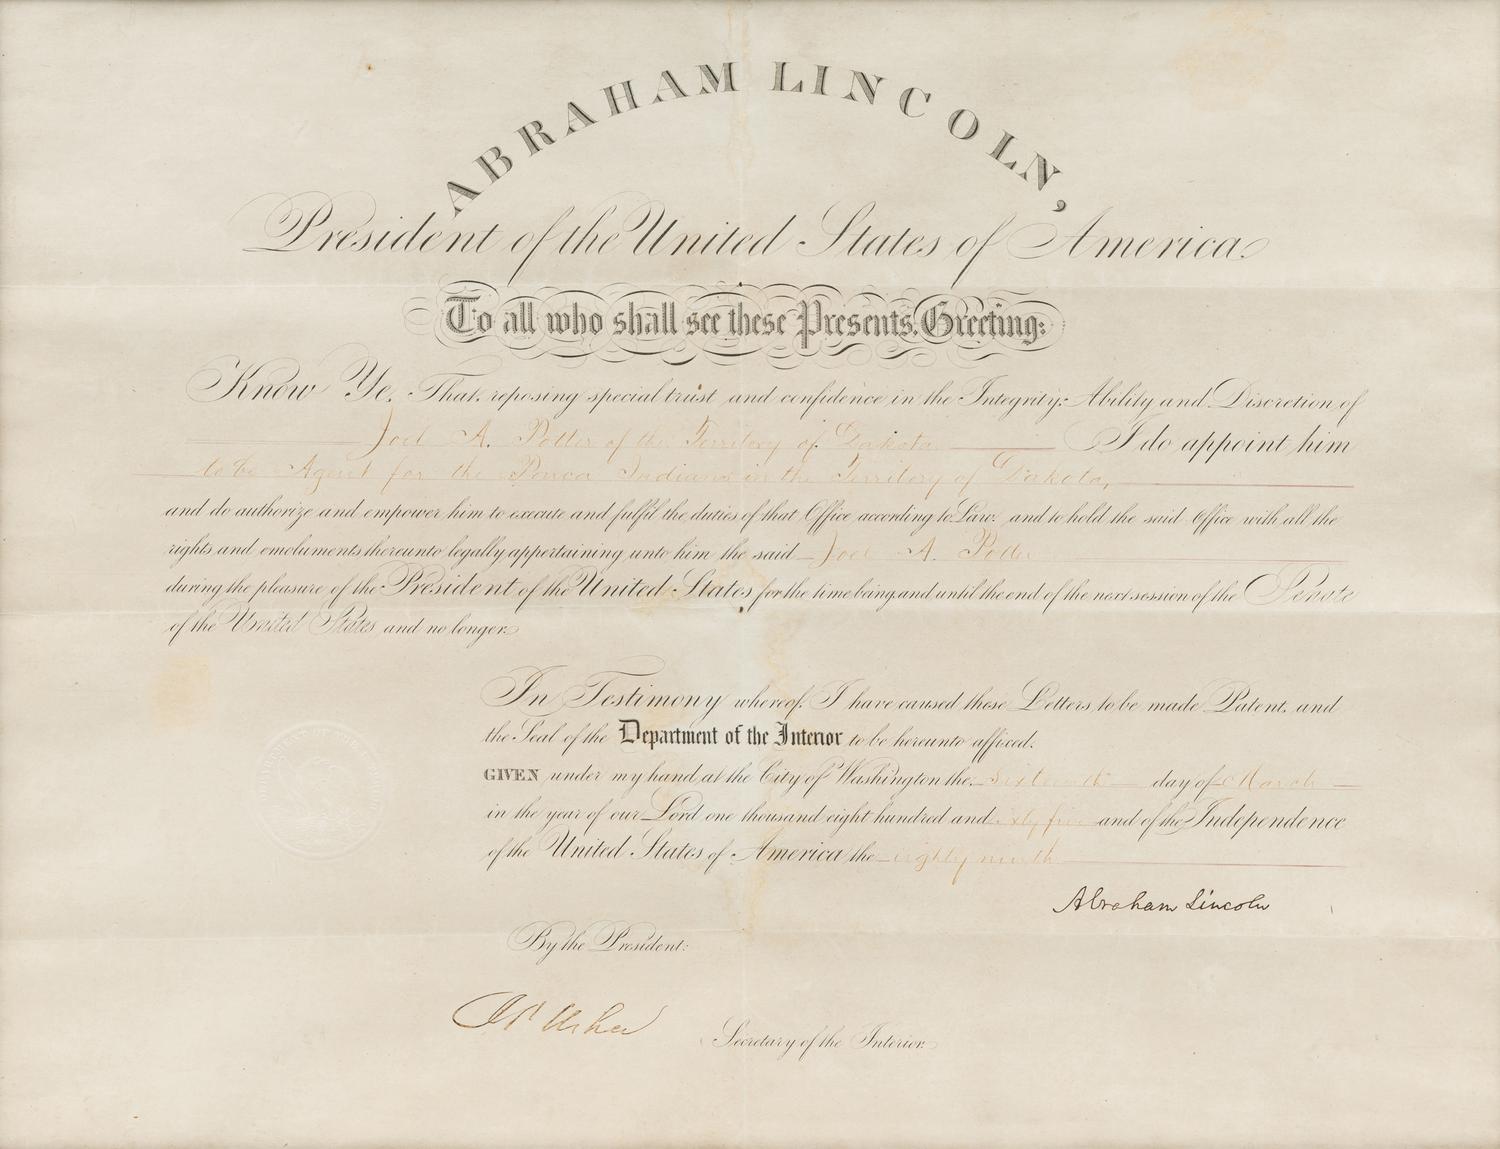 ABRAHAM LINCOLN,
President of the United States of America.
To all who shall see these Presents, Greeting:
Know Ye, That, reposing special trust and confidence in the Integrity, Ability and Discretion of
Joel A. Potter of the Territory of Dakota I do appoint him
to be Agent for the Ponca Indians in the Territory of Dakota,
and do authorize and empower him to execute and fulfil the duties of that Office according to Law: and to hold the said Office with all the
rights and emoluments thereunto legally appertaining unto him the said Joel A. Potter
during the pleasure of the President of the United States for the time being, and until the end of the next session of the Senate
of the United States and no longer.
In Testimony whereof, I have caused these Letters to be made Patent, and
the Seal of the Department of the Interior to be hereunto affixed.
GIVEN under my hand at the City of Washington the sixteenth day of March
in the year of our Lord one thousand eight hundred and sixty five and of the Independence
of the United States of America the eighty ninth
Abraham Lincoln
By the President:
J P Usher
Secretary of the Interior.